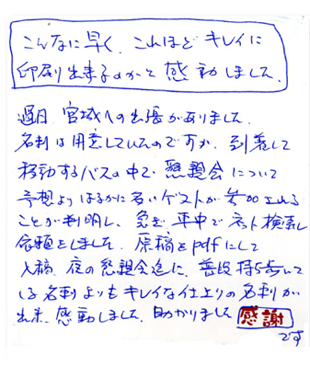 こんなに早く、これほどキレイに
印刷出来るのかと感動しました。
過日 宮城への出張がありました。
名刺は用意していたのですが、到着して
移動するバスの中で懇親会について
予想よりはるかに多いゲストが参加される
ことが判明し、急ぎ車中でネット検索し
依頼をしました。原稿をpdfにして
入稿、夜の懇親会迄に、普段持ち歩いて
いる名刺よりもキレイな仕上りの名刺が
出来、感動しました。助かりました 感謝
です